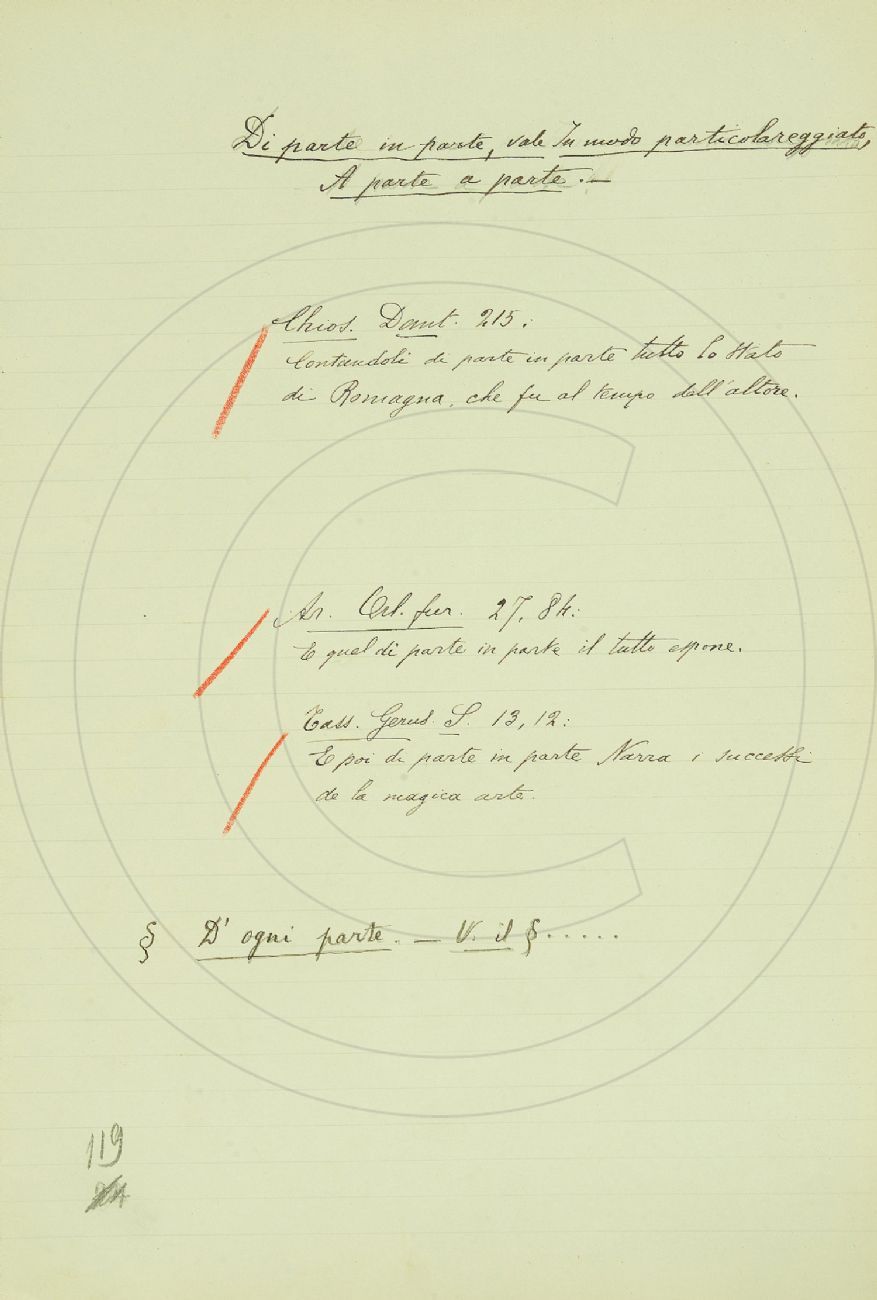 Di parte in parte, vale In modo particolareggiato,
A parte a parte. —
Chios. Dant. 215:
Contandoli di parte in parte tutto lo stato
di Romagna, che fu al tempo dell'altore.
Ar. Orl. fur. 27, 84:
E quel di parte in parte il tutto espone.
Tass. Gerus. S. 13, 12:
E poi di parte in parte Narra i successi
de la magica arte.
§ D' ogni parte. — V. il § . . . . .
119